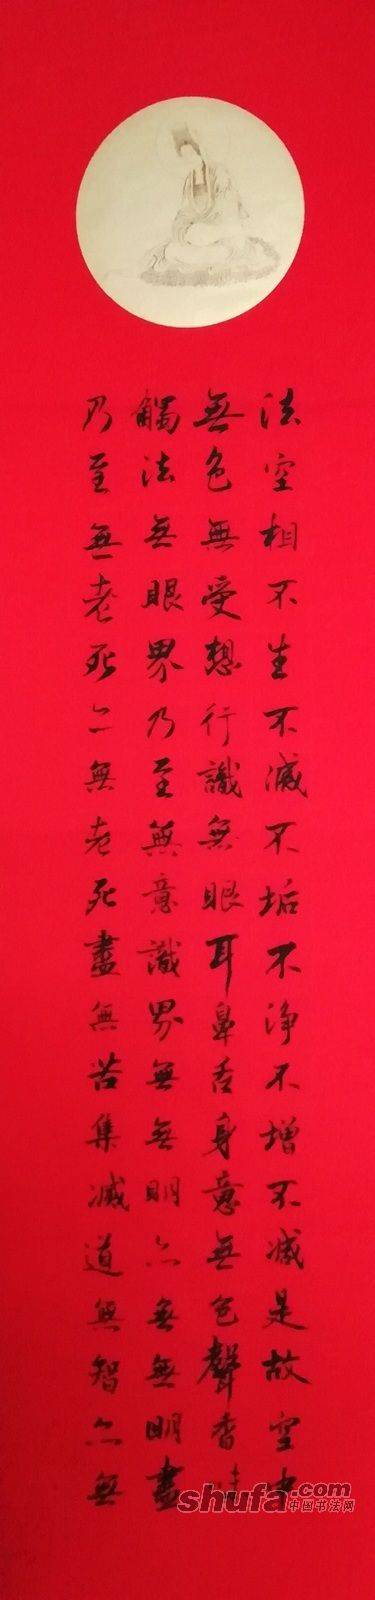 法空相不生不滅不垢不淨不增不减是故空中
無色無受想行識無眼耳鼻舌身意無色聲香味
觸法無眼界乃至無意識界無無明亦無無明盡
乃至無老死亦無老死盡無苦集滅道無智亦無
shufa.com
中国书法网